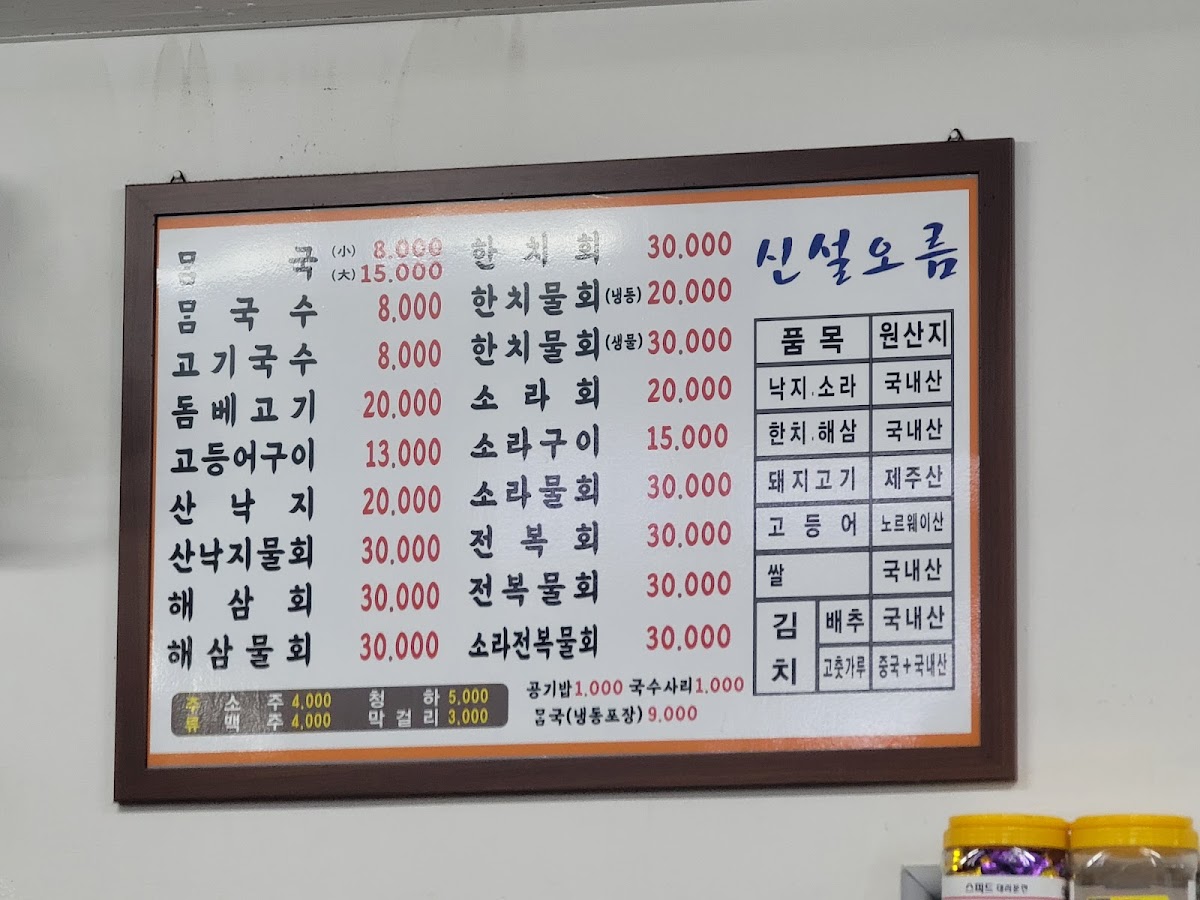 ᄆᆞᆷ국 (小) 8.000
(大) 15.000
ᄆᆞᆷ국수 8.000
고기국수 8.000
돔베고기 20.000
고등어구이 13.000
산낙지 20.000
산낙지물회 30.000
해삼회 30.000
해삼물회 30.000
한치회 30.000
한치물회(냉동) 20.000
한치물회(생물) 30.000
소라회 20.000
소라구이 15.000
소라물회 30.000
전복회 30.000
전복물회 30.000
소라전복물회 30.000
주류
소주 4,000 청하 5,000
맥주 4,000 막걸리 3,000
공기밥 1.000 국수사리 1.000
ᄆᆞᆷ국(냉동포장) 9.000
신설오름
품목 원산지
낙지.소라 국내산
한치.해삼 국내산
돼지고기 제주산
고등어 노르웨이산
쌀 국내산
김치 배추 국내산
고춧가루 중국+국내산
스피드